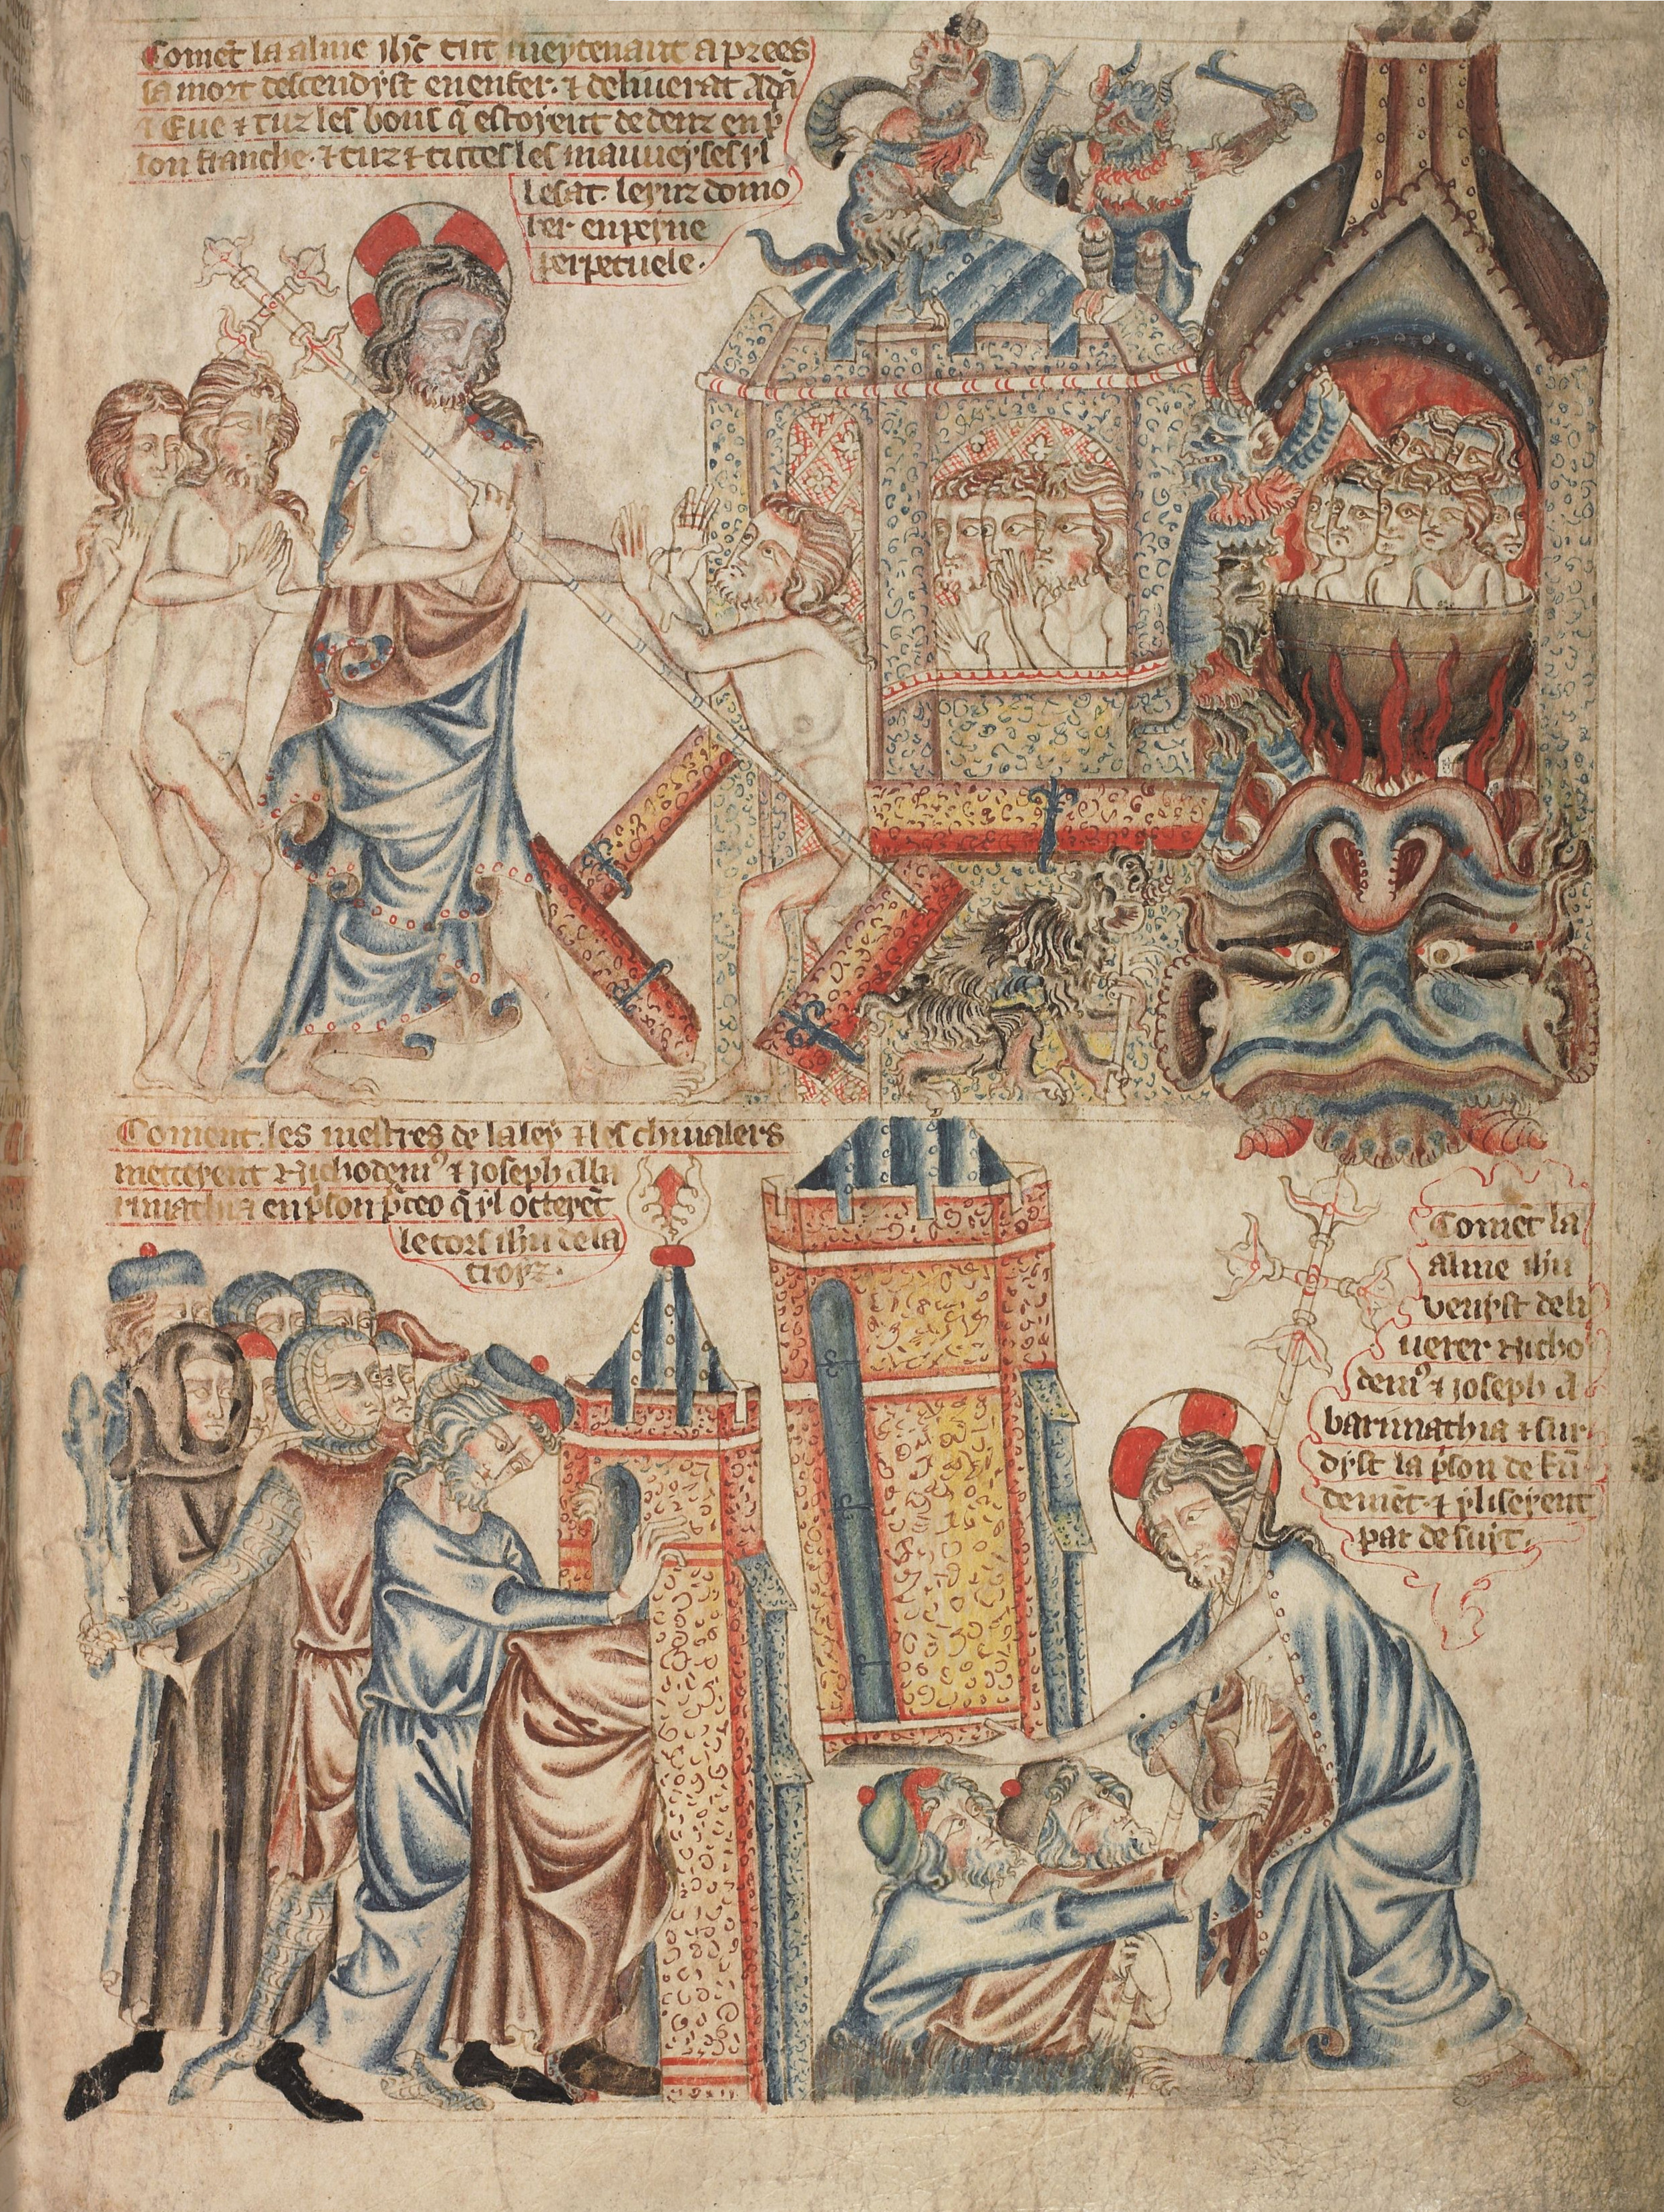 Comēt la alme ihc̄ tut meytenaut aprees
sa mort descendyst en enfer · ⁊ deliuerat Adā
⁊ Eue ⁊ tuz les bons q̄ estoyent dedenz en p̄
son franche · ⁊ tuz ⁊ tuttes les mauueyses yl
lesat · leyuz
ber en peyne
perpetuele ·
Coment les mestres de la ley ⁊ les chiualers
metteyent Nichodemꝰ ⁊ Joseph Aba
rimathia en pͥson pͬceo q̄ yl octeyēt
le cors ihū de la
croyz ·
Comēt la
alme ihū
venyst deli
uerer Nicho
demꝰ ⁊ Joseph A
barimathia ⁊ sur
dyst la pͥson de fū
demēt · ⁊ yl iseyent
par desuyt ·